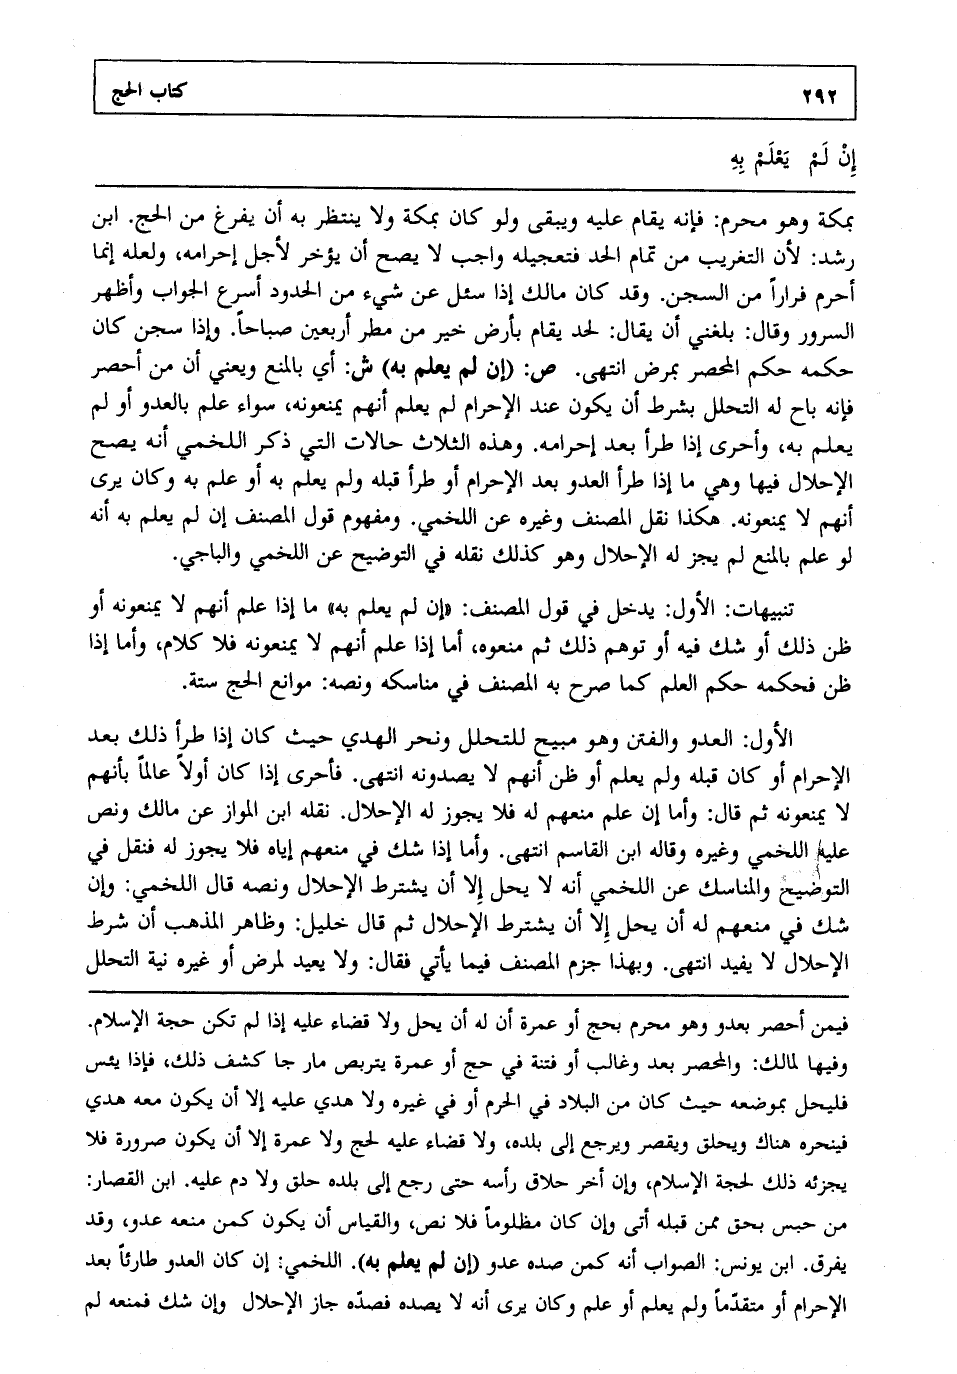 ٢٩٢
كتاب الحج
إِنْ لَمْ يَعْلَمْ بِهِ
بمكة وهو محرم: فإنه يقام عليه ويبقى ولو كان بمكة ولا ينتظر به أن يفرغ من الحج. ابن
رشد: لأن التغريب من تمام الحد فتعجيله واجب لا يصح أن يؤخر لأجل إحرامه، ولعله إنما
أحرم فراراً من السجن. وقد كان مالك إذا سئل عن شيء من الحدود أسرع الجواب وأظهر
السرور وقال: بلغني أن يقال: لحد يقام بأرض خير من مطر أربعين صباحاً. وإذا سجن كان
حكمه حكم المحصر بمرض انتهى. ص: (إن لم يعلم به) ش: أي بالمنع ويعني أن من أحصر
فإنه باح له التحلل بشرط أن يكون عند الإحرام لم يعلم أنهم يمنعونه، سواء علم بالعدو أو لم
يعلم به، وأحرى إذا طرأ بعد إحرامه. وهذه الثلاث حالات التي ذكر اللخمي أنه يصح
الإحلال فيها وهي ما إذا طرأ العدو بعد الإحرام أو طرأ قبله ولم يعلم به أو علم به وكان يرى
أنهم لا يمنعونه. هكذا نقل المصنف وغيره عن اللخمي. ومفهوم قول المصنف إن لم يعلم به أنه
لو علم بالمنع لم يجز له الإحلال وهو كذلك نقله في التوضيح عن اللخمي والباجي.
تنبيهات: الأول: يدخل في قول المصنف: «إن لم يعلم به» ما إذا علم أنهم لا يمنعونه أو
ظن ذلك أو شك فيه أو توهم ذلك ثم منعوه، أما إذا علم أنهم لا يمنعونه فلا كلام، وأما إذا
ظن فحكمه حكم العلم كما صرح به المصنف في مناسكه ونصه: موانع الحج ستة.
الأول: العدو والفتن وهو مبيح للتحلل ونحر الهدي حيث كان إذا طرأ ذلك بعد
الإحرام أو كان قبله ولم يعلم أو ظن أنهم لا يصدونه انتهى. فأحرى إذا كان أولاً عالماً بأنهم
لا يمنعونه ثم قال: وأما إن علم منعهم له فلا يجوز له الإحلال. نقله ابن المواز عن مالك ونص
عليه اللخمي وغيره وقاله ابن القاسم انتهى. وأما إذا شك في منعهم إياه فلا يجوز له فنقل في
التوضيح والمناسك عن اللخمي أنه لا يحل إلا أن يشترط الإحلال ونصه قال اللخمي: وإن
شك في منعهم له أن يحل إلا أن يشترط الإحلال ثم قال خليل: وظاهر المذهب أن شرط
الإحلال لا يفيد انتهى. وبهذا جزم المصنف فيما يأتي فقال: ولا يعيد لمرض أو غيره نية التحلل
فيمن أحصر بعدو وهو محرم بحج أو عمرة أن له أن يحل ولا قضاء عليه إذا لم تكن حجة الإسلام.
وفيها لمالك: والمحصر بعد وغالب أو فتنة في حج أو عمرة يتربص مار جا كشف ذلك، فإذا يئس
فليحل بموضعه حيث كان من البلاد في الحرم أو في غيره ولا هدي عليه إلا أن يكون معه هدي
فينحره هناك ويحلق ويقصر ويرجع إلى بلده، ولا قضاء عليه لحج ولا عمرة إلا أن يكون صرورة فلا
يجزئه ذلك لحجة الإسلام، وإن أخر حلاق رأسه حتى رجع إلى بلده حلق ولا دم عليه. ابن القصار:
من حبس بحق ممن قبله أتى وإن كان مظلوماً فلا نص، والقياس أن يكون كمن منعه عدو، وقد
يفرق. ابن يونس: الصواب أنه كمن صده عدو (إن لم يعلم به). اللخمي: إن كان العدو طارئاً بعد
الإحرام أو متقدّماً ولم يعلم أو علم وكان يرى أنه لا يصده فصدّه جاز الإحلال وإن شك فمنعه لم